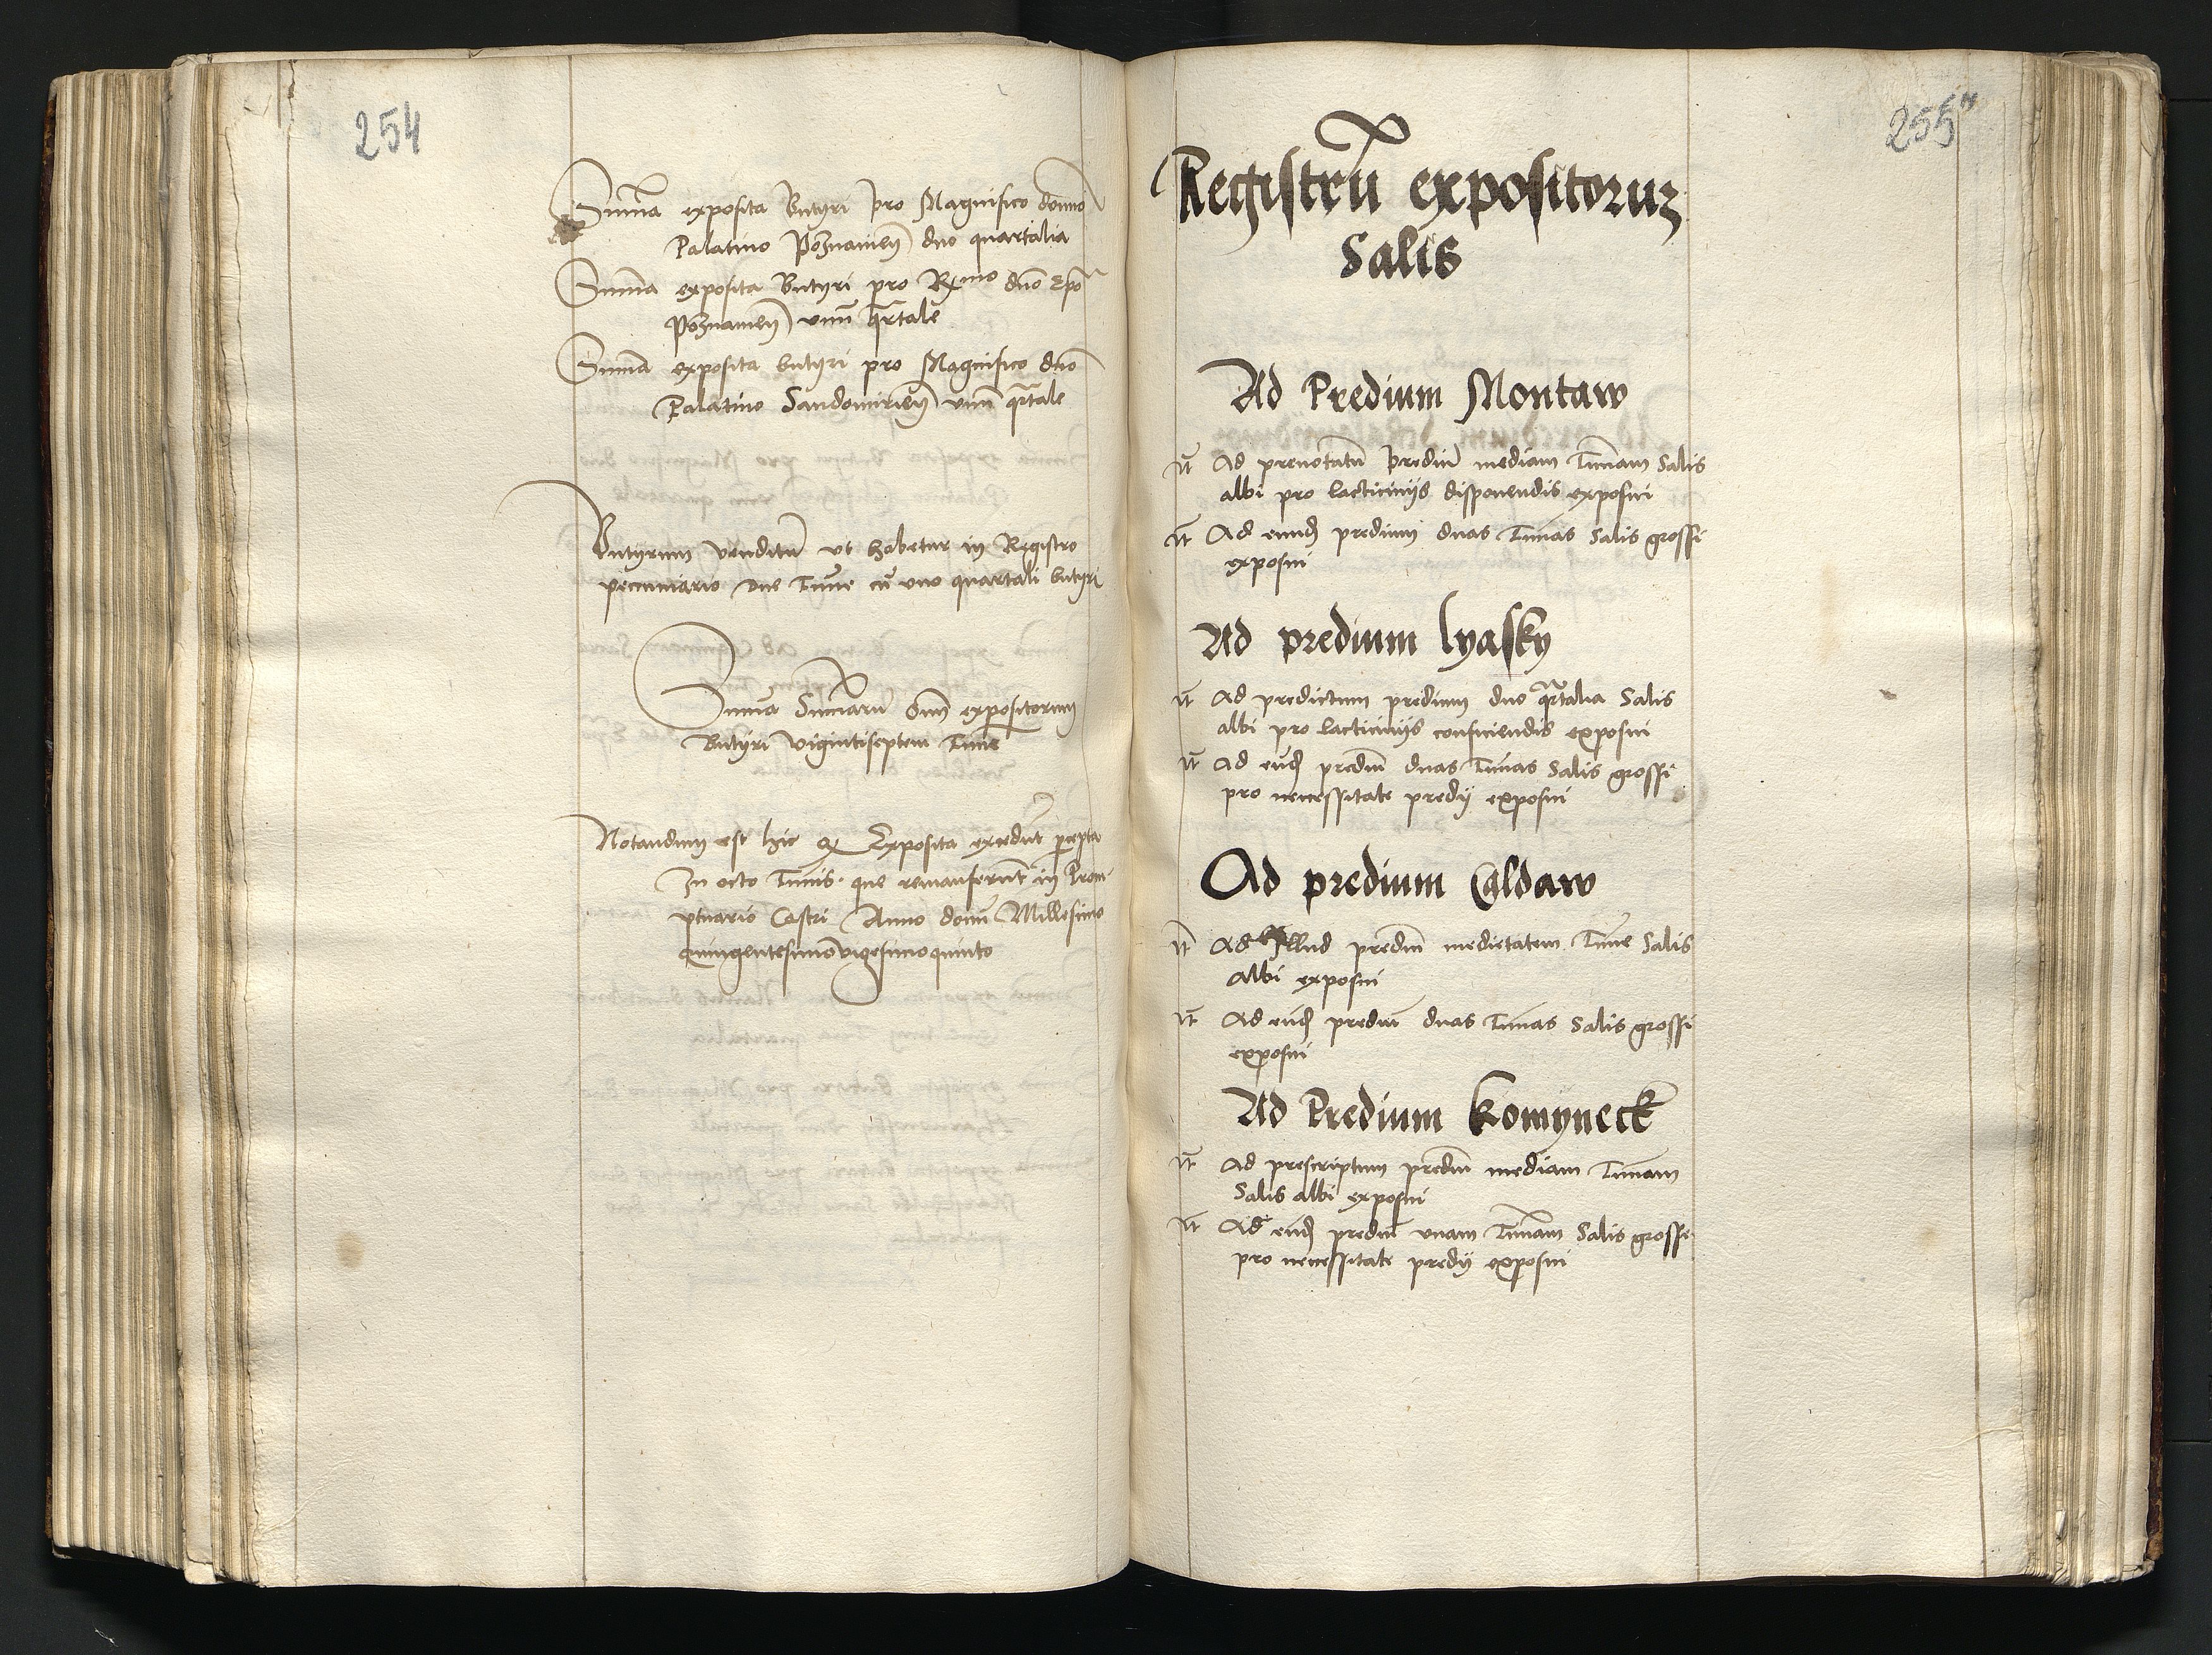 254
Suma exposita Butyri pro Magnifico domno
Palatino Poznanien duo quartalia
Suma exposita Butyri pro Rmo duo Epo
Poznanien unu qrtale
Suma exposita butyri pro Magnifico duo
Palatino Sandomirien unu qrtale
Butyrum venditu ut habetur in Registro
pecuniario due Tune cu uno quartali butyri
Suma Sumaru Omi expositorum
Butyri vigintiseptem Tune
Notandum est hic Exposita excedut pcepta
In octo Tunis que remanserunt in Prom
ptuario Castri Anno domi Millesimo
quingentesimo vigesimoquinto
255
Registru expositorum
Salis
Ad Predium Montaw
It Ad prenotatu prediu mediam Tunam Salis
albi pro lacticinijs disponendis exposui
It Ad eund predium duas Tunas Salis grossi
exposui
Ad predium lyasky
It Ad predictum predium duo qrtalia Salis
albi pro lacticinijs conficiendis exposui
It Ad eud prediu duas Tunas Salis grossi
pro necessitate predij exposui
Ad predium Caldaw
It Ad Illud prediu medietatem Tune Salis
albi exposui
It Ad eud prediu duas Tunas Salis grossi
exposui
Ad Predium Komyneck
It Ad prescriptum prediu mediam Tunam
Salis albi exposui
It Ad eud prediu unam Tunam Salis grossi
pro necessitate predij exposui